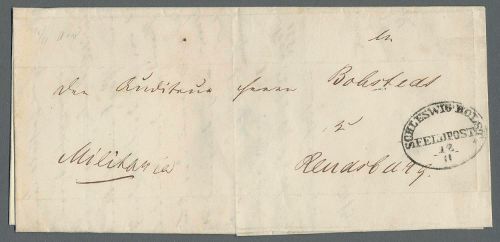 An
den Auditeur Herrn Bobstedt
z
Militaria
Rendsburg.
SCHLESWIG HOLST
FELDPOST
12
11